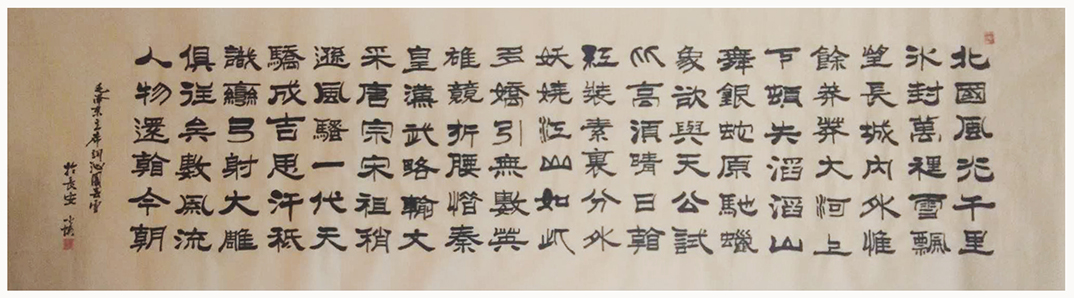 北國風光千里
冰封萬裡雪飄
望長城內外惟
餘莽莽大河上
下頓失滔滔山
舞銀蛇原馳蠟
象欲與天公試
比高須晴日看
紅裝素裹分外
妖嬈江山如此
多嬌引無數英
雄競折腰惜秦
皇漢武略輸文
采唐宗宋祖稍
遜風騷一代天
驕成吉思汗祇
識彎弓射大雕
俱往矣數風流
人物還看今朝
毛澤東主席詞沁園春雪
於長安